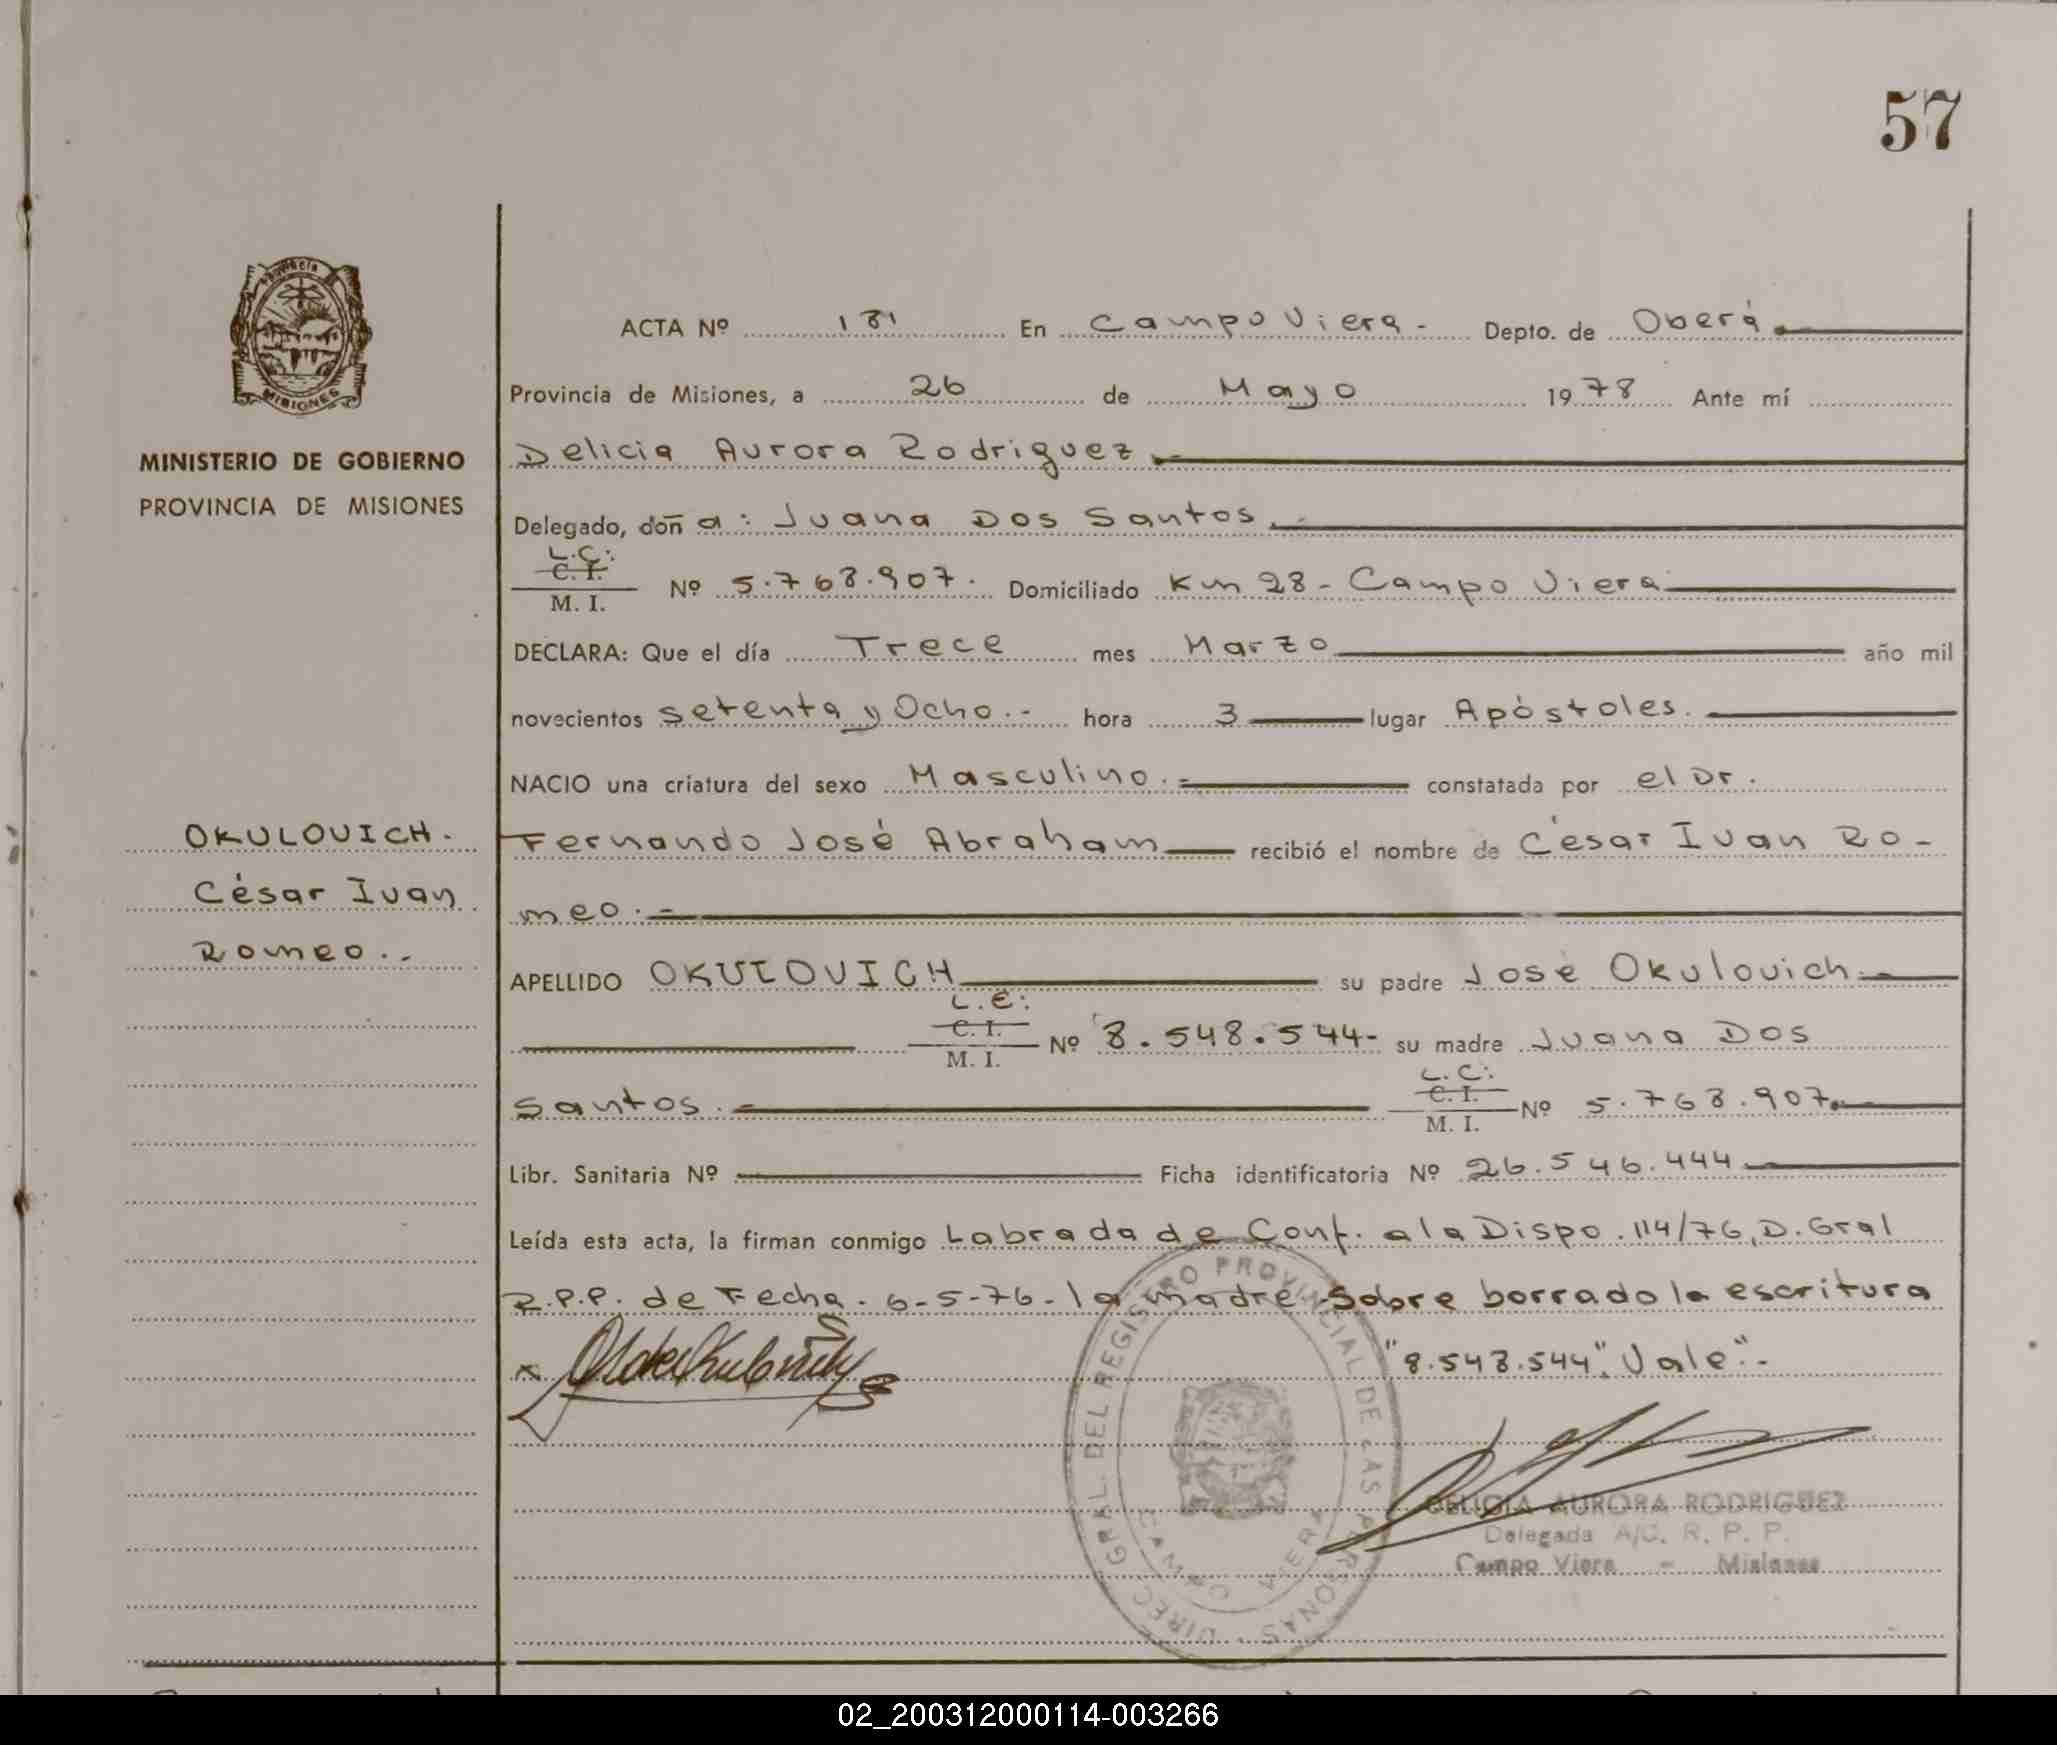 57
ACTA Nº 181 En Campo Viera.- Depto. de Oberá
Provincia de Misiones, a 26 de Mayo 1978 Ante mí
Delicia Aurora Rodriguez.-
MINISTERIO DE GOBIERNO
PROVINCIA DE MISIONES
Delegado, doña: Juana Dos Santos.-
L.C.:
C. I.
M. I. Nº 5.768.907. Domiciliado Km 28 - Campo Viera
DECLARA: Que el día Trece mes Marzo año mil
novecientos setenta y Ocho.- hora 3 lugar Apóstoles.
NACIO una criatura del sexo Masculino.- constatada por el Dr.
Fernando José Abraham recibió el nombre de César Ivan Ro-
meo.-
OKULOVICH.
César Ivan
Romeo.-
APELLIDO OKULOVICH su padre José Okulovich.-
L.E:
C. I.
M. I. Nº 8.548.544- su madre Juana Dos
Santos.- L.C:
C. I.
M. I. Nº 5.768.907.
Libr. Sanitaria Nº Ficha identificatoria Nº 26.546.444
Leída esta acta, la firman conmigo Labrada de Conf. a la Dispo. 114/76, D. Gral
R.P.P. de Fecha. 6-5-76- la madre. Sobre borrado la escritura
"8.548.544". Vale".-
DIREC GRAL. DEL REGISTRO PROVINCIAL DE LAS PERSONAS
CAMPO VIERA
DELICIA AURORA RODRIGUEZ
Delegada A/C. R. P. P.
Campo Viera - Misiones
PROVINCIA
MISIONES
02_200312000114-003266